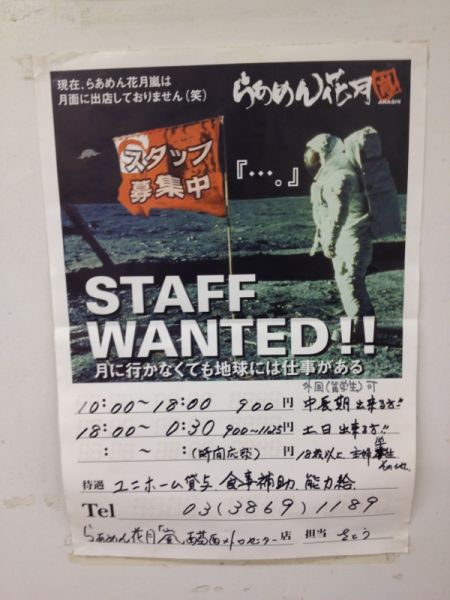 現在、らあめん花月嵐は
月面に出店しておりません（笑）
らあめん花月嵐
ARASHI
スタッフ
募集中
『…。』
STAFF
WANTED!!
月に行かなくても地球には仕事がある
外国(留学生)可
10:00～18:00 900円 中長期出来る方!!
18:00～0:30 900～1125円 土日出来る方!!
: ～ : (時間応談)円 18歳以上、主婦、学生
その他
待遇 ユニホーム貸与、食事補助、能力給
Tel 03(3869)1189
らあめん花月「嵐」西葛西メトロセンター店 担当 さとう